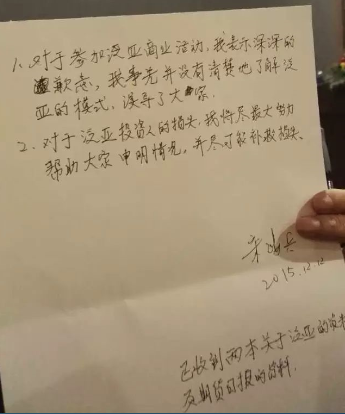 1、对于参加泛亚商业活动，我表示深深的
歉意，我事先并没有清楚地了解泛
亚的模式，误导了大家。
2、对于泛亚投资人的损失，我将尽最大努力
帮助大家申明情况，并尽可能补救损失、
宋鸿兵
2015.12.12
已收到两本关于泛亚的资料
及期货日报的资料.